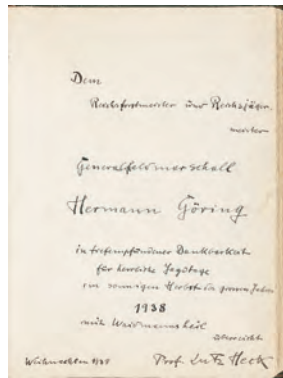 Dem
Reichsforstmeister und Reichsjäger-
meister
Generalfeldmarschall
Hermann Göring
in tiefempfundener Dankbarkeit
für herrliche Jagdtage
im sonnigen Herbst des Jahres
1938
mit Waidmannsheil
überreicht
Weihnachten 1938 Prof. Lutz Heck